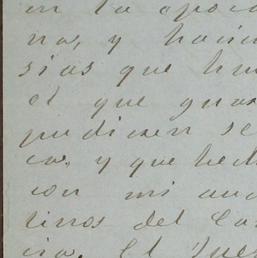 en la apoca
na, y hacien
sias que hu
el que guar
pudiesen se
ca. y que hech
con mi au
linos del Ca
cia. El Jue